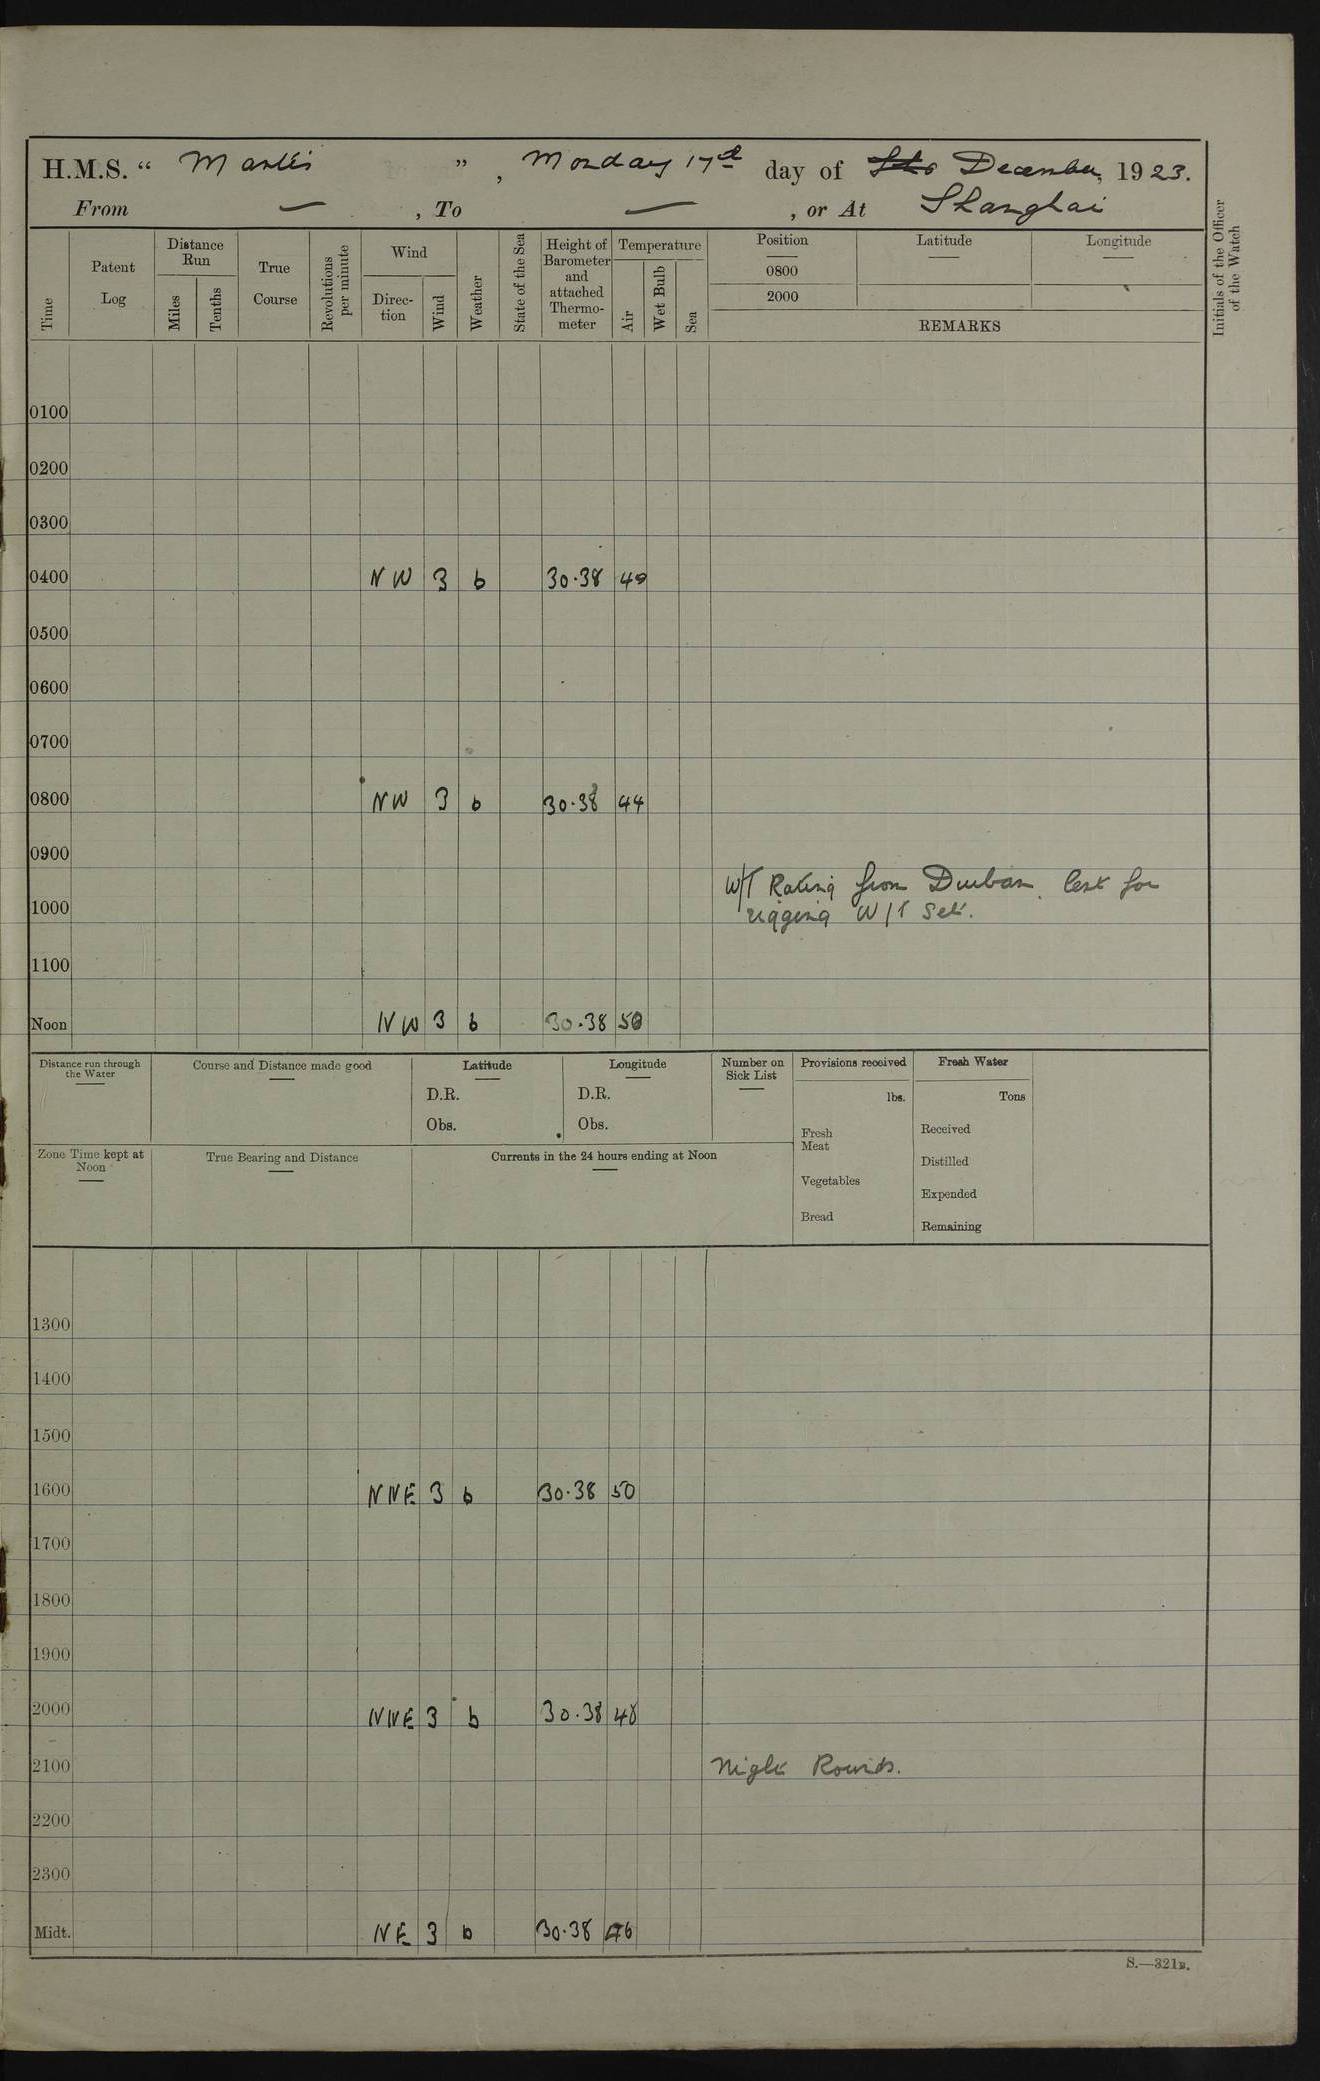 H.M.S. “ Mantis ”, Monday 17th day of December, 1923.
From — , To — , or At Shanghai
Time
Patent Log
Distance Run
Miles
Tenths
True Course
Revolutions per minute
Wind
Direc-tion
Wind
Weather
State of the Sea
Height of Barometer and attached Thermo-meter
Temperature
Air
Wet Bulb
Sea
Position
0800
2000
Latitude
Longitude
REMARKS
Initials of the Officer of the Watch
0100
0200
0300
0400 NW 3 b 30.38 40
0500
0600
0700
0800 NW 3 b 30.38 44
0900
W/T Rating from Durban lent for
1000 rigging W/T Set.
1100
Noon NW 3 b 30.38 50
Distance run through the Water
Course and Distance made good
Latitude
D.R.
Obs.
Longitude
D.R.
Obs.
Number on Sick List
Provisions received
lbs.
Fresh Meat
Vegetables
Bread
Fresh Water
Tons
Received
Distilled
Expended
Remaining
Zone Time kept at Noon
True Bearing and Distance
Currents in the 24 hours ending at Noon
1300
1400
1500
1600 NNE 3 b 30.38 50
1700
1800
1900
2000 NNE 3 b 30.38 48
2100 Night Rounds.
2200
2300
Midt. NE 3 b 30.38 46
S.—321B.